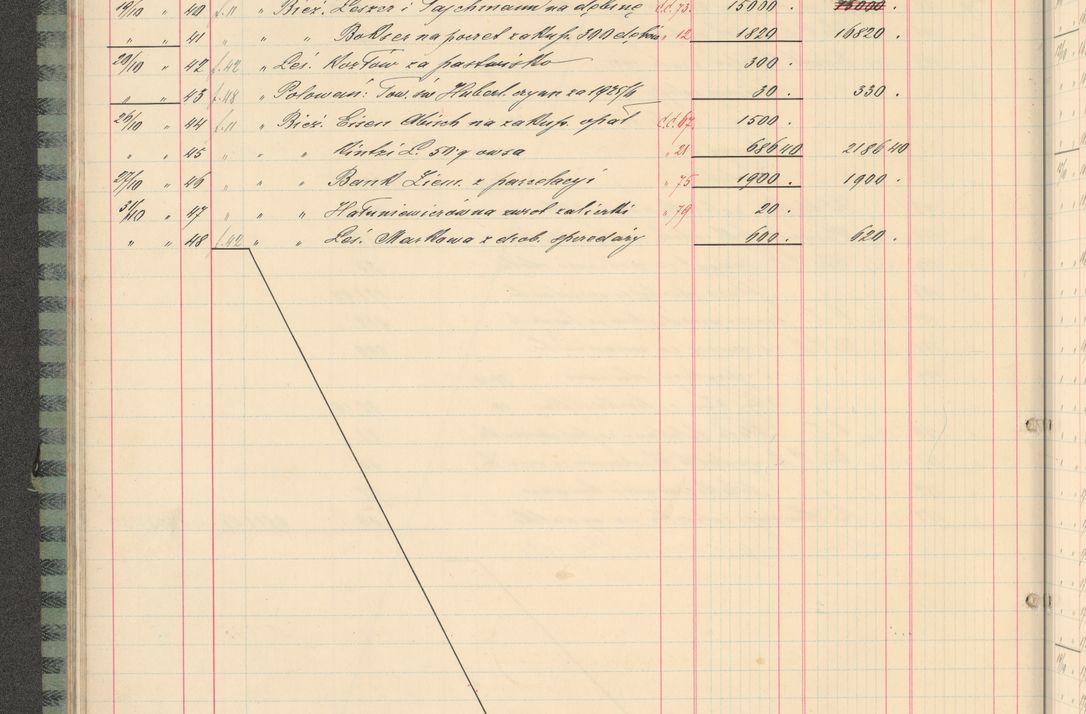 19/10 " 40 f.11 " Bież. Leszer i Tajchmann na dębinę d.d. 73. 15000 . 15000 .
" " 41 " " na poczet zakup. 300 12 1820 16820 .
20/10 " 42 f.42 " Leś. Kozłów za pastwisko 300 .
" " 43 f.48 " Polowań: Tow. św Hubert. czynsz za 1925/6 30 . 330 .
26/10 " 44 f.11 " Bież. Eisen Abisch na zakup. opał d.d. 67. 1500 .
" " 45 " " " Kintzi L. 50 q owsa " 21 686 40 2186 40
27/10 " 46 " " " Bank Ziem. z parcelacyi " 75 1900 . 1900 .
31/10 " 47 " " " zwrot zaliczki " 79 20 .
" " 48 f.42 " " Leś. Maskowa z drob. sprzedaży 600 . 620 .